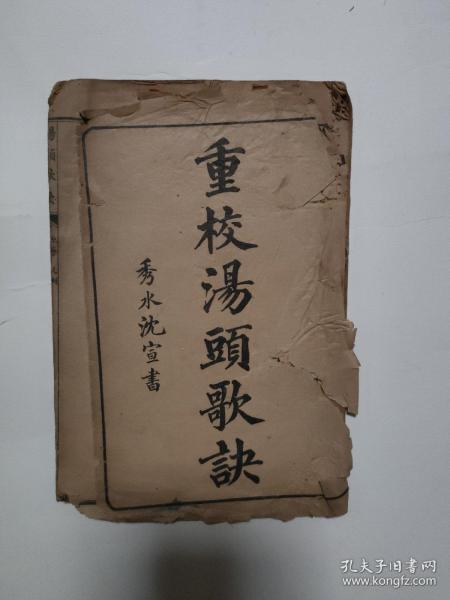 重校湯頭歌訣
秀水沈宣書
湯頭歌
孔夫子旧书网
www.kongfz.com